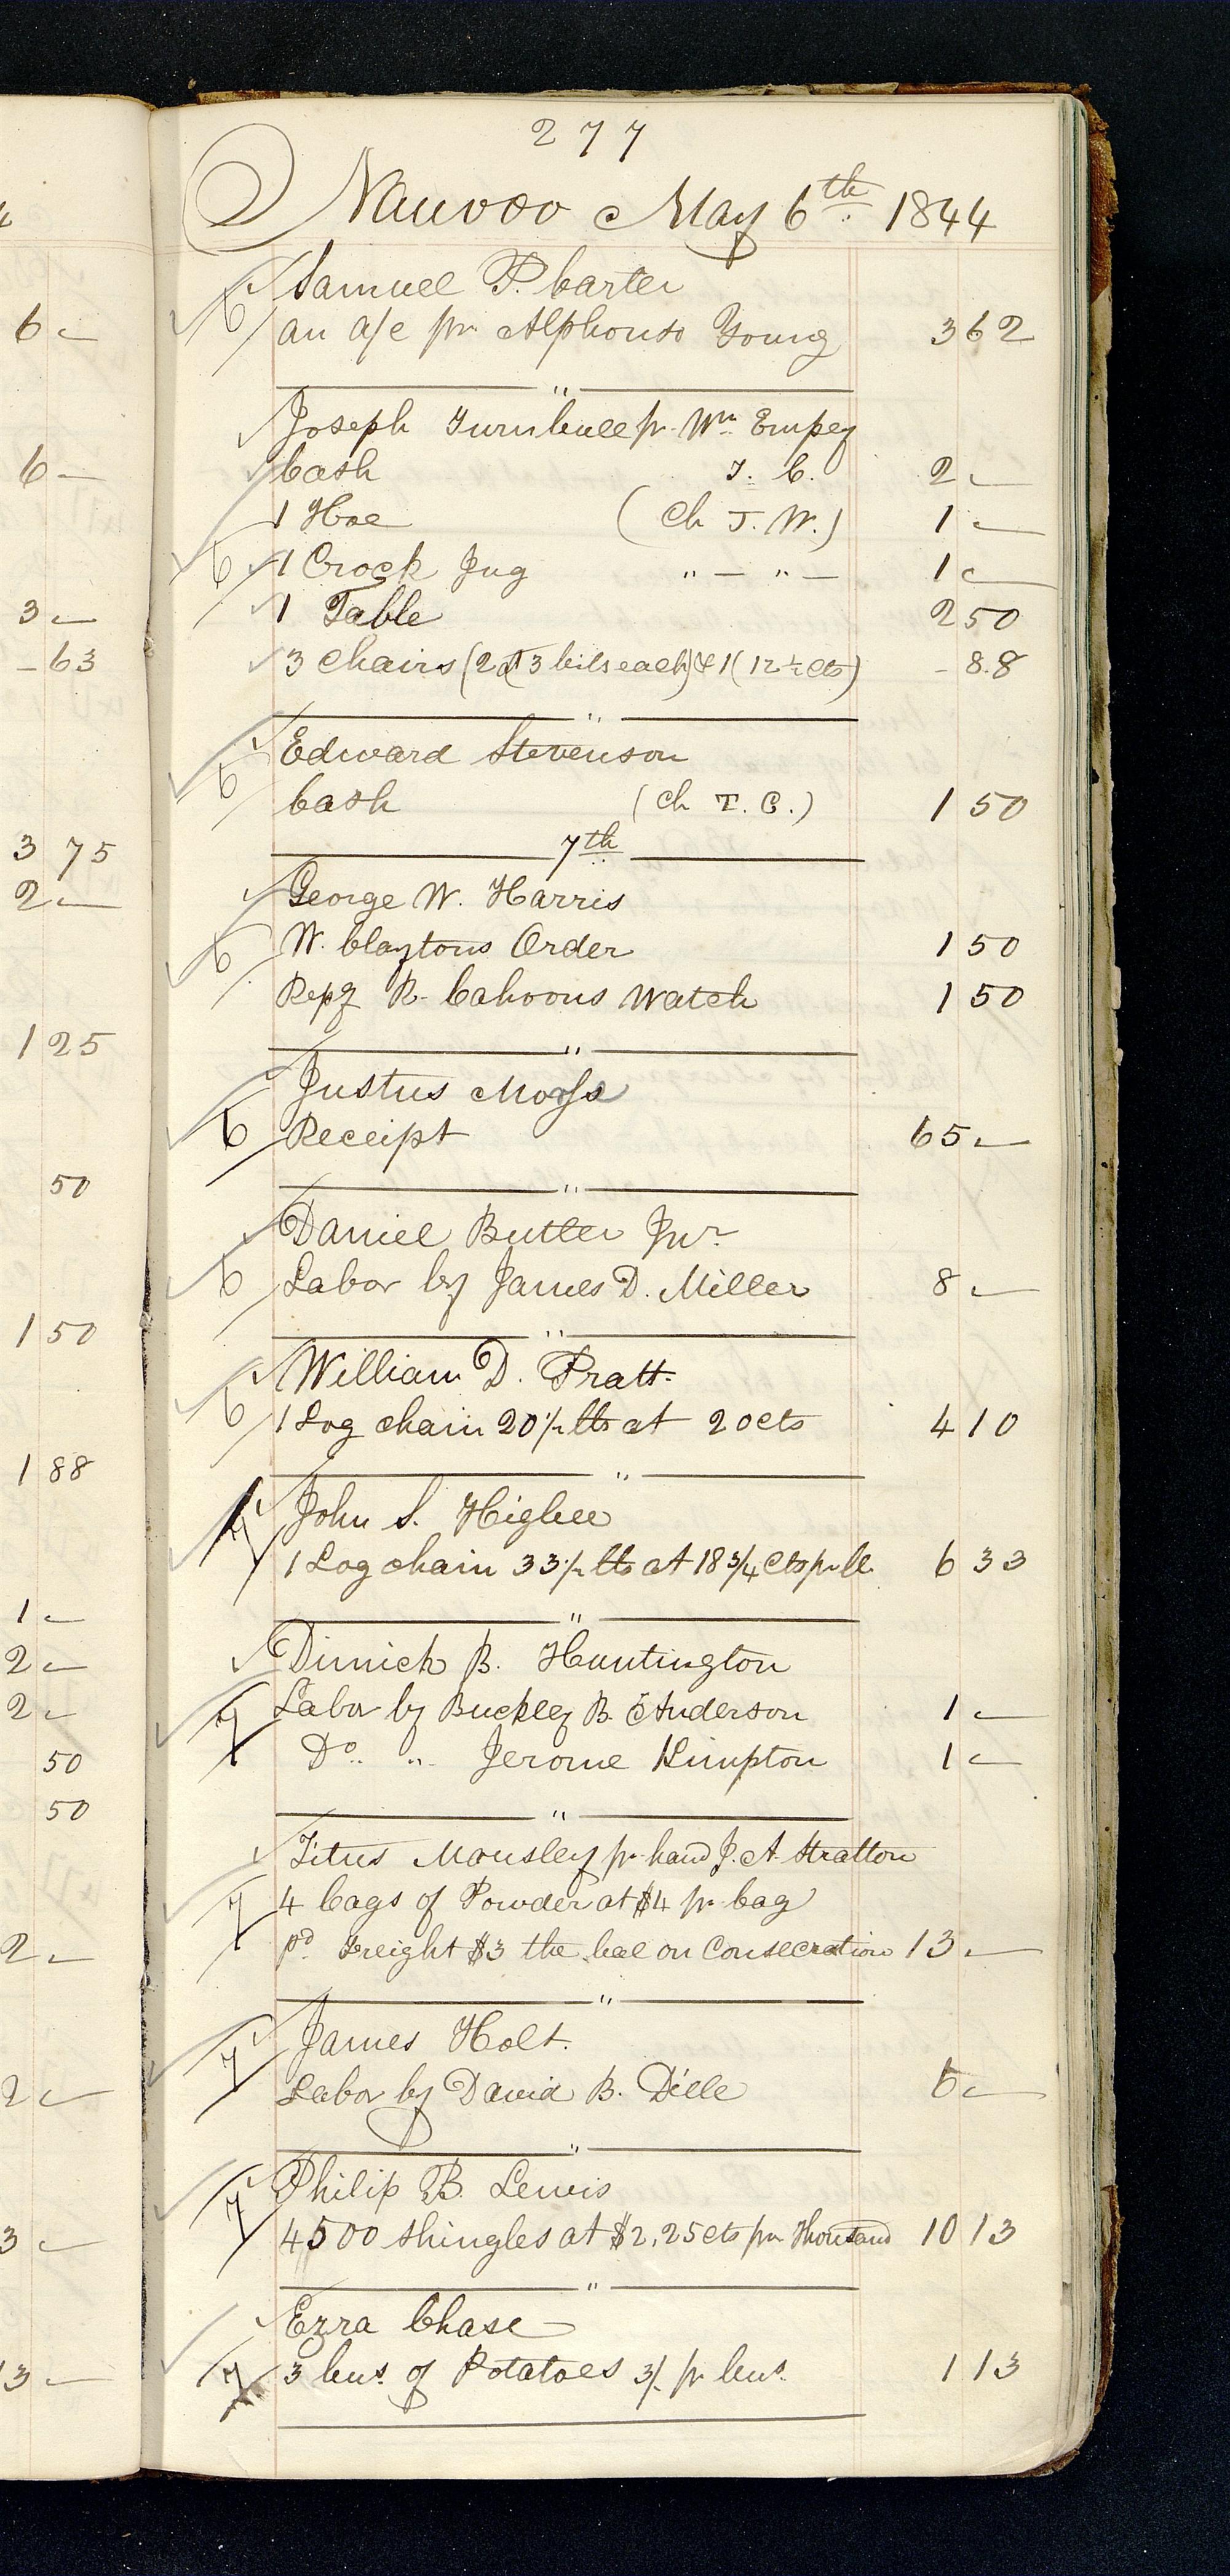 277
Nauvoo May 6th 1844
Samuel P. Carter
an a/c pr Alphonso Young 3 62
"
Joseph Turnbull pr Wm Empey
Cash T. C. 2 —
1 Hoe (Ch T. W.) 1 —
6 1 Crock Jug " — " — 1 —
1 Table 2 50
3 Chairs (2 at 3 bits each) & 1 (12½ cts) - 88
"
Edward Stevenson
6 Cash (Ch T. C.) 1 50
7th
George W. Harris
6 W. Claytons Order 1 50
Repg R. Cahoons Watch 1 50
"
Justus Morse
6 Receipt 65 —
"
Daniel Butler Junr
6 Labor by James D. Miller 8 —
"
William D. Pratt
6 1 Log chain 20½ lbs at 20 cts 4 10
"
John S. Higbee
7 1 Log chain 33½ lbs at 18¾ cts pr lb 6 33
"
Dimick B. Huntington
7 Labor by Buckley B. Anderson 1 —
Do " Jerome Kimpton 1 —
"
Titus Mousley pr hand J. A. Stratton
7 4 bags of Powder at $4 pr bag
pd Freight $3 the bal on Consecration 13 —
"
James Holt.
7 Labor by David B. Dille 6 —
"
Philip B. Lewis
7 4500 Shingles at $2,25 cts pr Thousand 10 13
"
Ezra Chase
7 3 bus. of Potatoes 3/ pr bus. 1 13
6 —
6 —
3 —
- 63
3 75
2 —
1 25
50
1 50
1 88
1 —
2 —
2 —
50
50
2 —
2 —
3 —
13 —